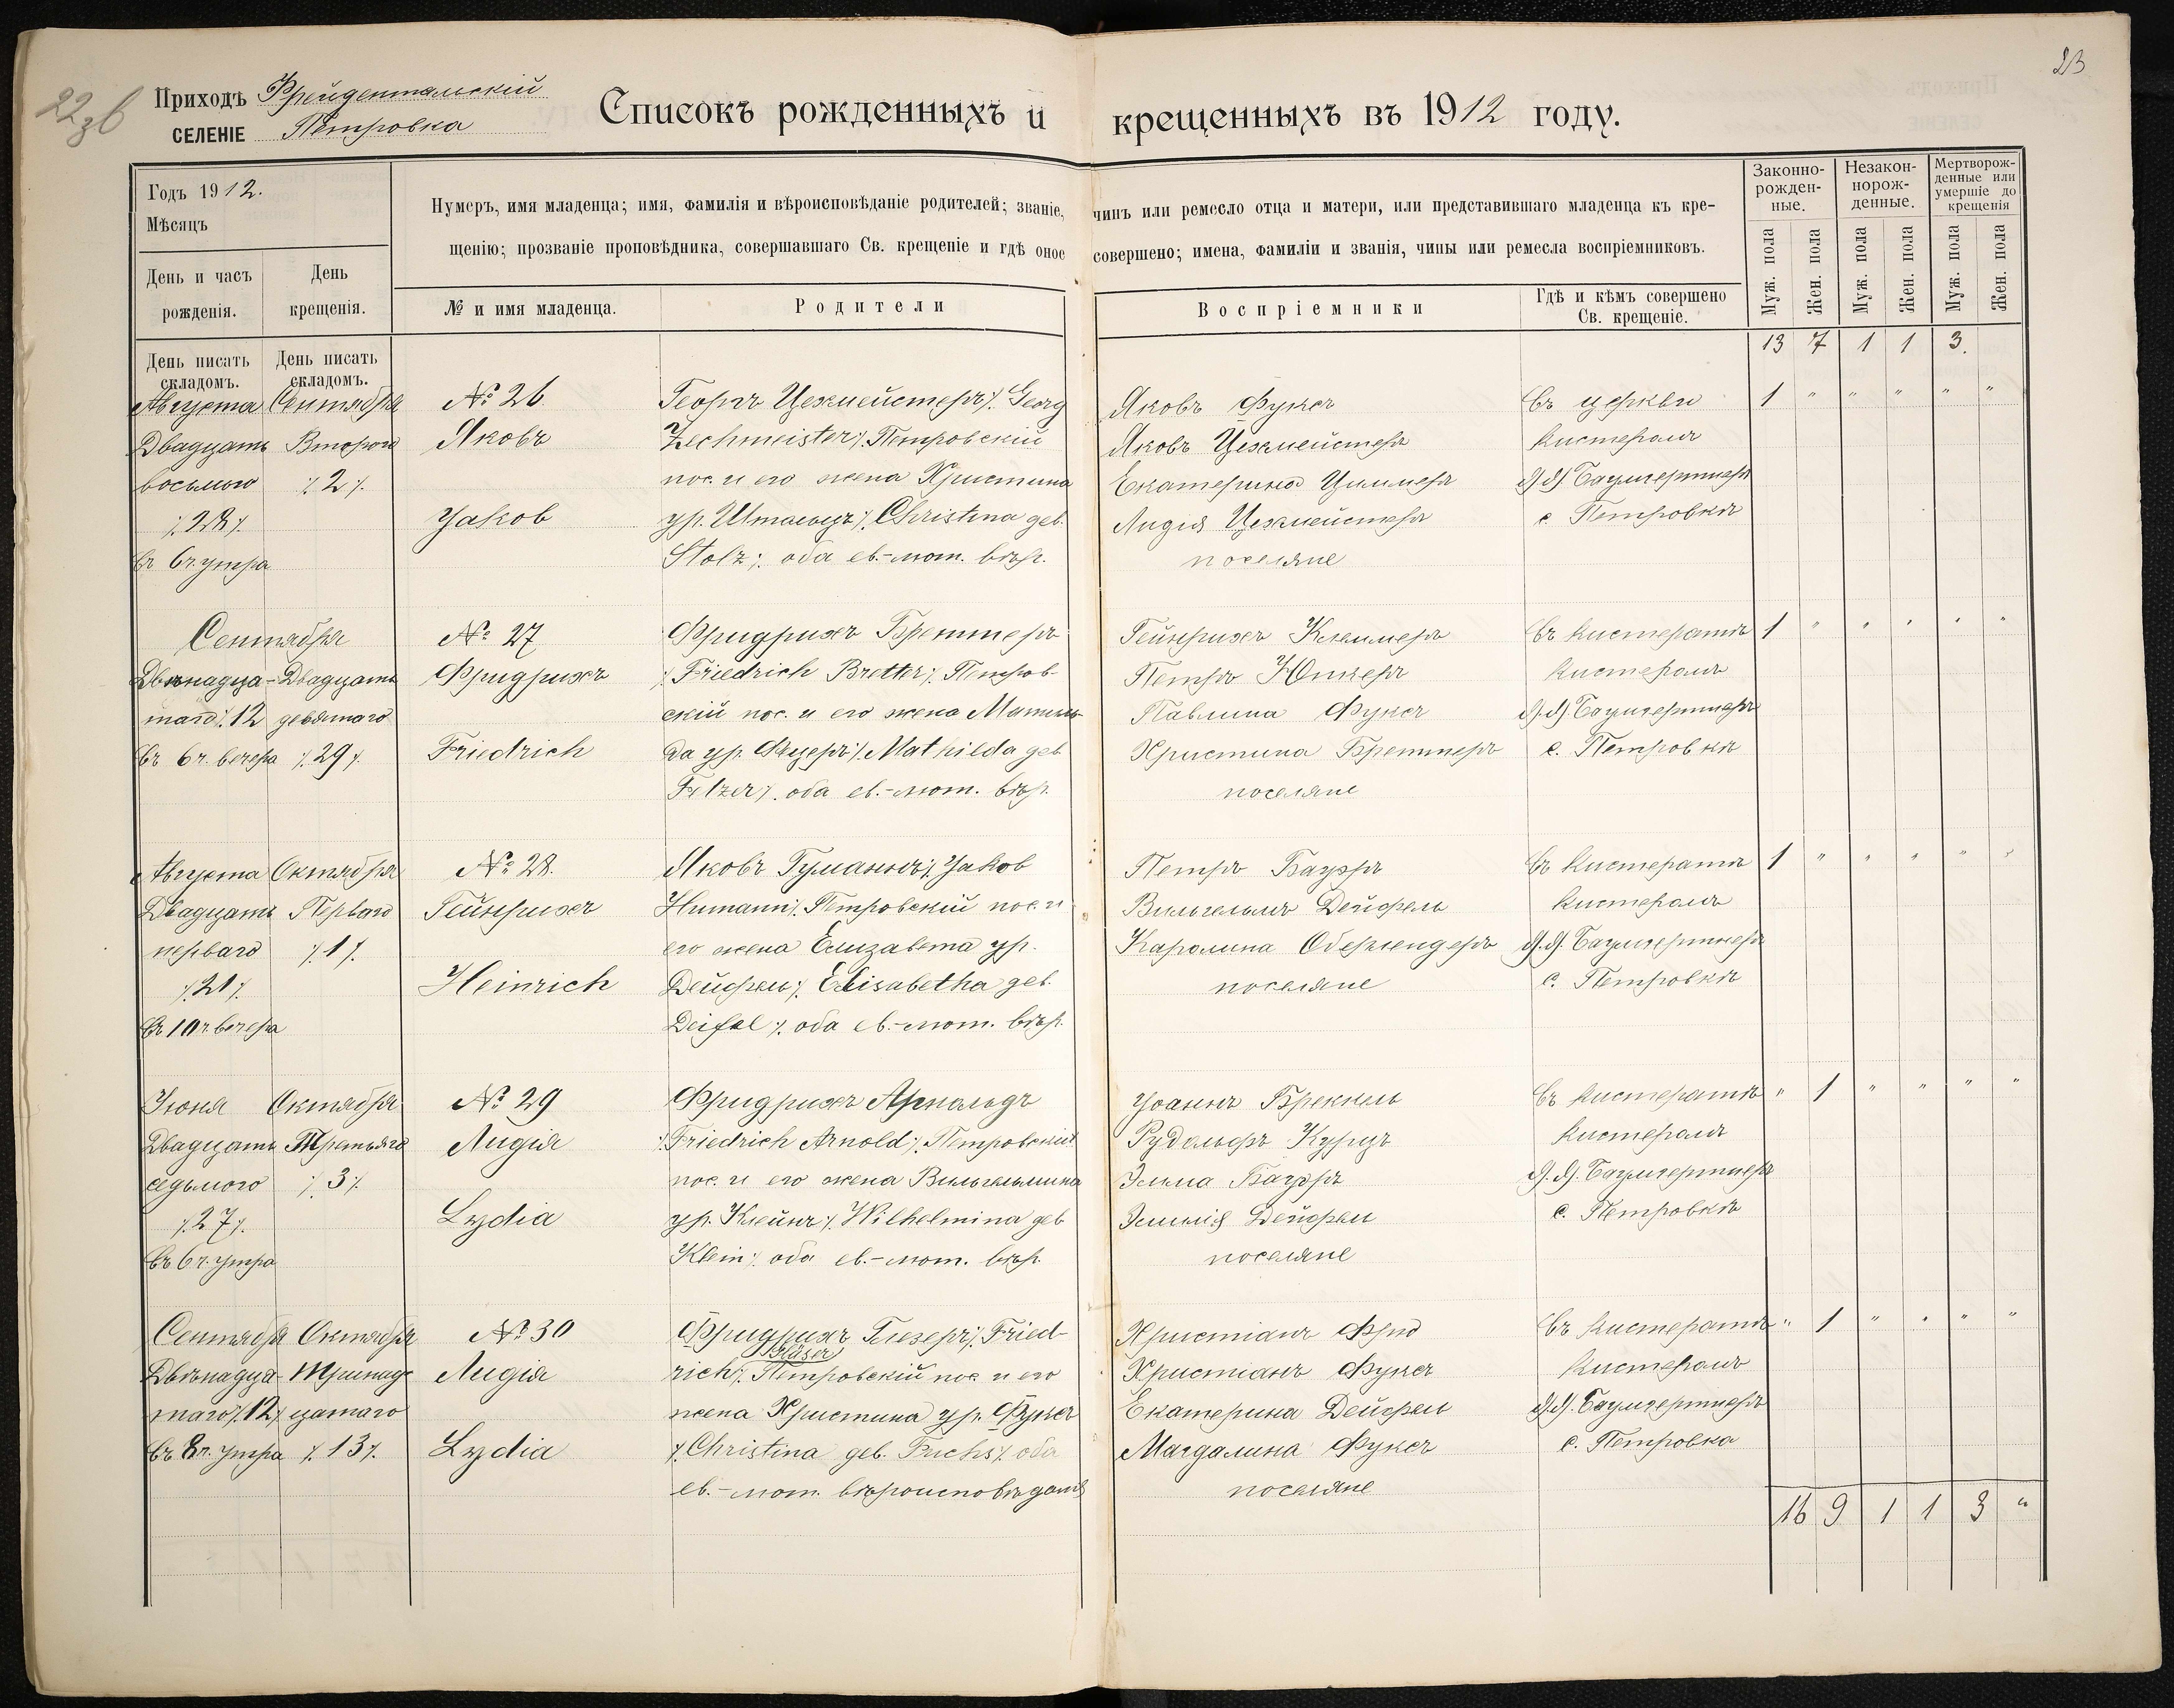 22 зв
23
Приходъ Фрейдентальскій
СЕЛЕНІЕ Петровка
Списокъ рожденныхъ и крещенныхъ въ 1912 году.
Годъ 1912.
Мѣсяцъ
День и часъ рожденія.
День крещенія.
Нумеръ, имя младенца; имя, фамилія и вѣроисповѣданіе родителей; званіе, чинъ или ремесло отца и матери, или представившаго младенца къ кре-
щенію; прозваніе проповѣдника, совершавшаго Св. крещеніе и гдѣ оное совершено; имена, фамиліи и званія, чины или ремесла воспріемниковъ.
№ и имя младенца.
Родители
Воспріемники
Гдѣ и кѣмъ совершено
Св. крещеніе.
Законно-
рожден-
ные.
Незакон-
норож-
денные.
Мертворож-
денные или
умершіе до
крещенія
Муж. пола
Жен. пола
Муж. пола
Жен. пола
Муж. пола
Жен. пола
День писать
складомъ.
День писать
складомъ.
13 7 1 1 3.
Августа
Двадцать
восьмого
/.28/.
въ 6ч. утра
Сентября
Второго
/.2/.
№ 26
Яковъ
Jakob
Георгъ Цехмейстеръ/. Georg
Zechmeister/. Петровскій
пос. и его жена Христина
ур. Штольцъ/. Christina geb.
Stolz/. оба ев.-лют. вѣр.
Яковъ Фуксъ
Яковъ Цехмейстеръ
Екатерина Циммеръ
Лидія Цехмейстеръ
поселяне
Въ церкви
кистеромъ
Я Я Баумгертнеръ
с Петровкѣ
1 " " " " "
Сентября
Двѣнадца-
таго/.12
въ 6ч. вечера
Двадцать
девятаго
/.29/.
№ 27
Фридрихъ
Friedrich
Фридрихъ Бреттеръ
/.Friedrich Bretter/. Петров-
скій пос. и его жена Матиль-
да ур. Фецеръ/. Mathilda geb.
Fetzer/. оба ев.-лют. вѣр.
Гейнрихъ Клеммеръ
Петръ Юнкеръ
Павлина Фуксъ
Христина Бреттеръ
поселяне
Въ кистератѣ
кистеромъ
Я.Я Баумгертнеръ
с. Петровкѣ
1 " " " " "
Августа
Двадцать
перваго
/.21/.
въ 10ч. вечера
Октября
Перваго
/.1/.
№ 28.
Гейнрихъ
Heinrich
Яковъ Гуманнъ/. Jakob
Humann/. Петровскій пос. и
его жена Елизавета ур.
Дейфель/. Elisabetha geb.
Deifel/. оба ев.-лют. вѣр.
Петръ Бауэръ
Вильгельмъ Дейфель
Каролина Оберлендеръ
поселяне
Въ кистератѣ
кистеромъ
Я.Я. Баумгертнеръ
с. Петровкѣ
1 " " " " "
Іюня
Двадцать
седьмого
/.27/.
въ 6ч. утра
Октября
Третьяго
/.3/.
№ 29
Лидія
Lydia
Фридрихъ Арнольдъ
/.Friedrich Arnold/. Петровскій
пос. и его жена Вильгельмина
ур. Клейнъ/. Wilhelmina geb
Klein/. оба ев.-лют. вѣр.
Іоаннъ Бреккель
Рудольфъ Курцъ
Эмма Бауэръ
Эмилія Дейфель
поселяне
Въ кистератѣ
кистеромъ
Я.Я. Баумгертнеръ
с. Петровкѣ
" 1 " " " "
Сентября
Двѣнадца-
таго/.12/.
въ 8ч. утра
Октября
Тринад-
цатаго
/.13/.
№ 30
Лидія
Lydia
Фридрихъ Глезеръ/. Fried-
Gläser
rich/. Петровскій пос. и его
жена Христина ур. Фуксъ
/.Christina geb. Fuchs/. оба
ев.-лют. вѣроисповѣданія
Христіанъ
Христіанъ Фуксъ
Екатерина Дейфель
Магдалина Фуксъ
поселяне
Въ кистератѣ
кистеромъ
Я.Я. Баумгертнеръ
с. Петровка
" 1 " " " "
16 9 1 1 3 "